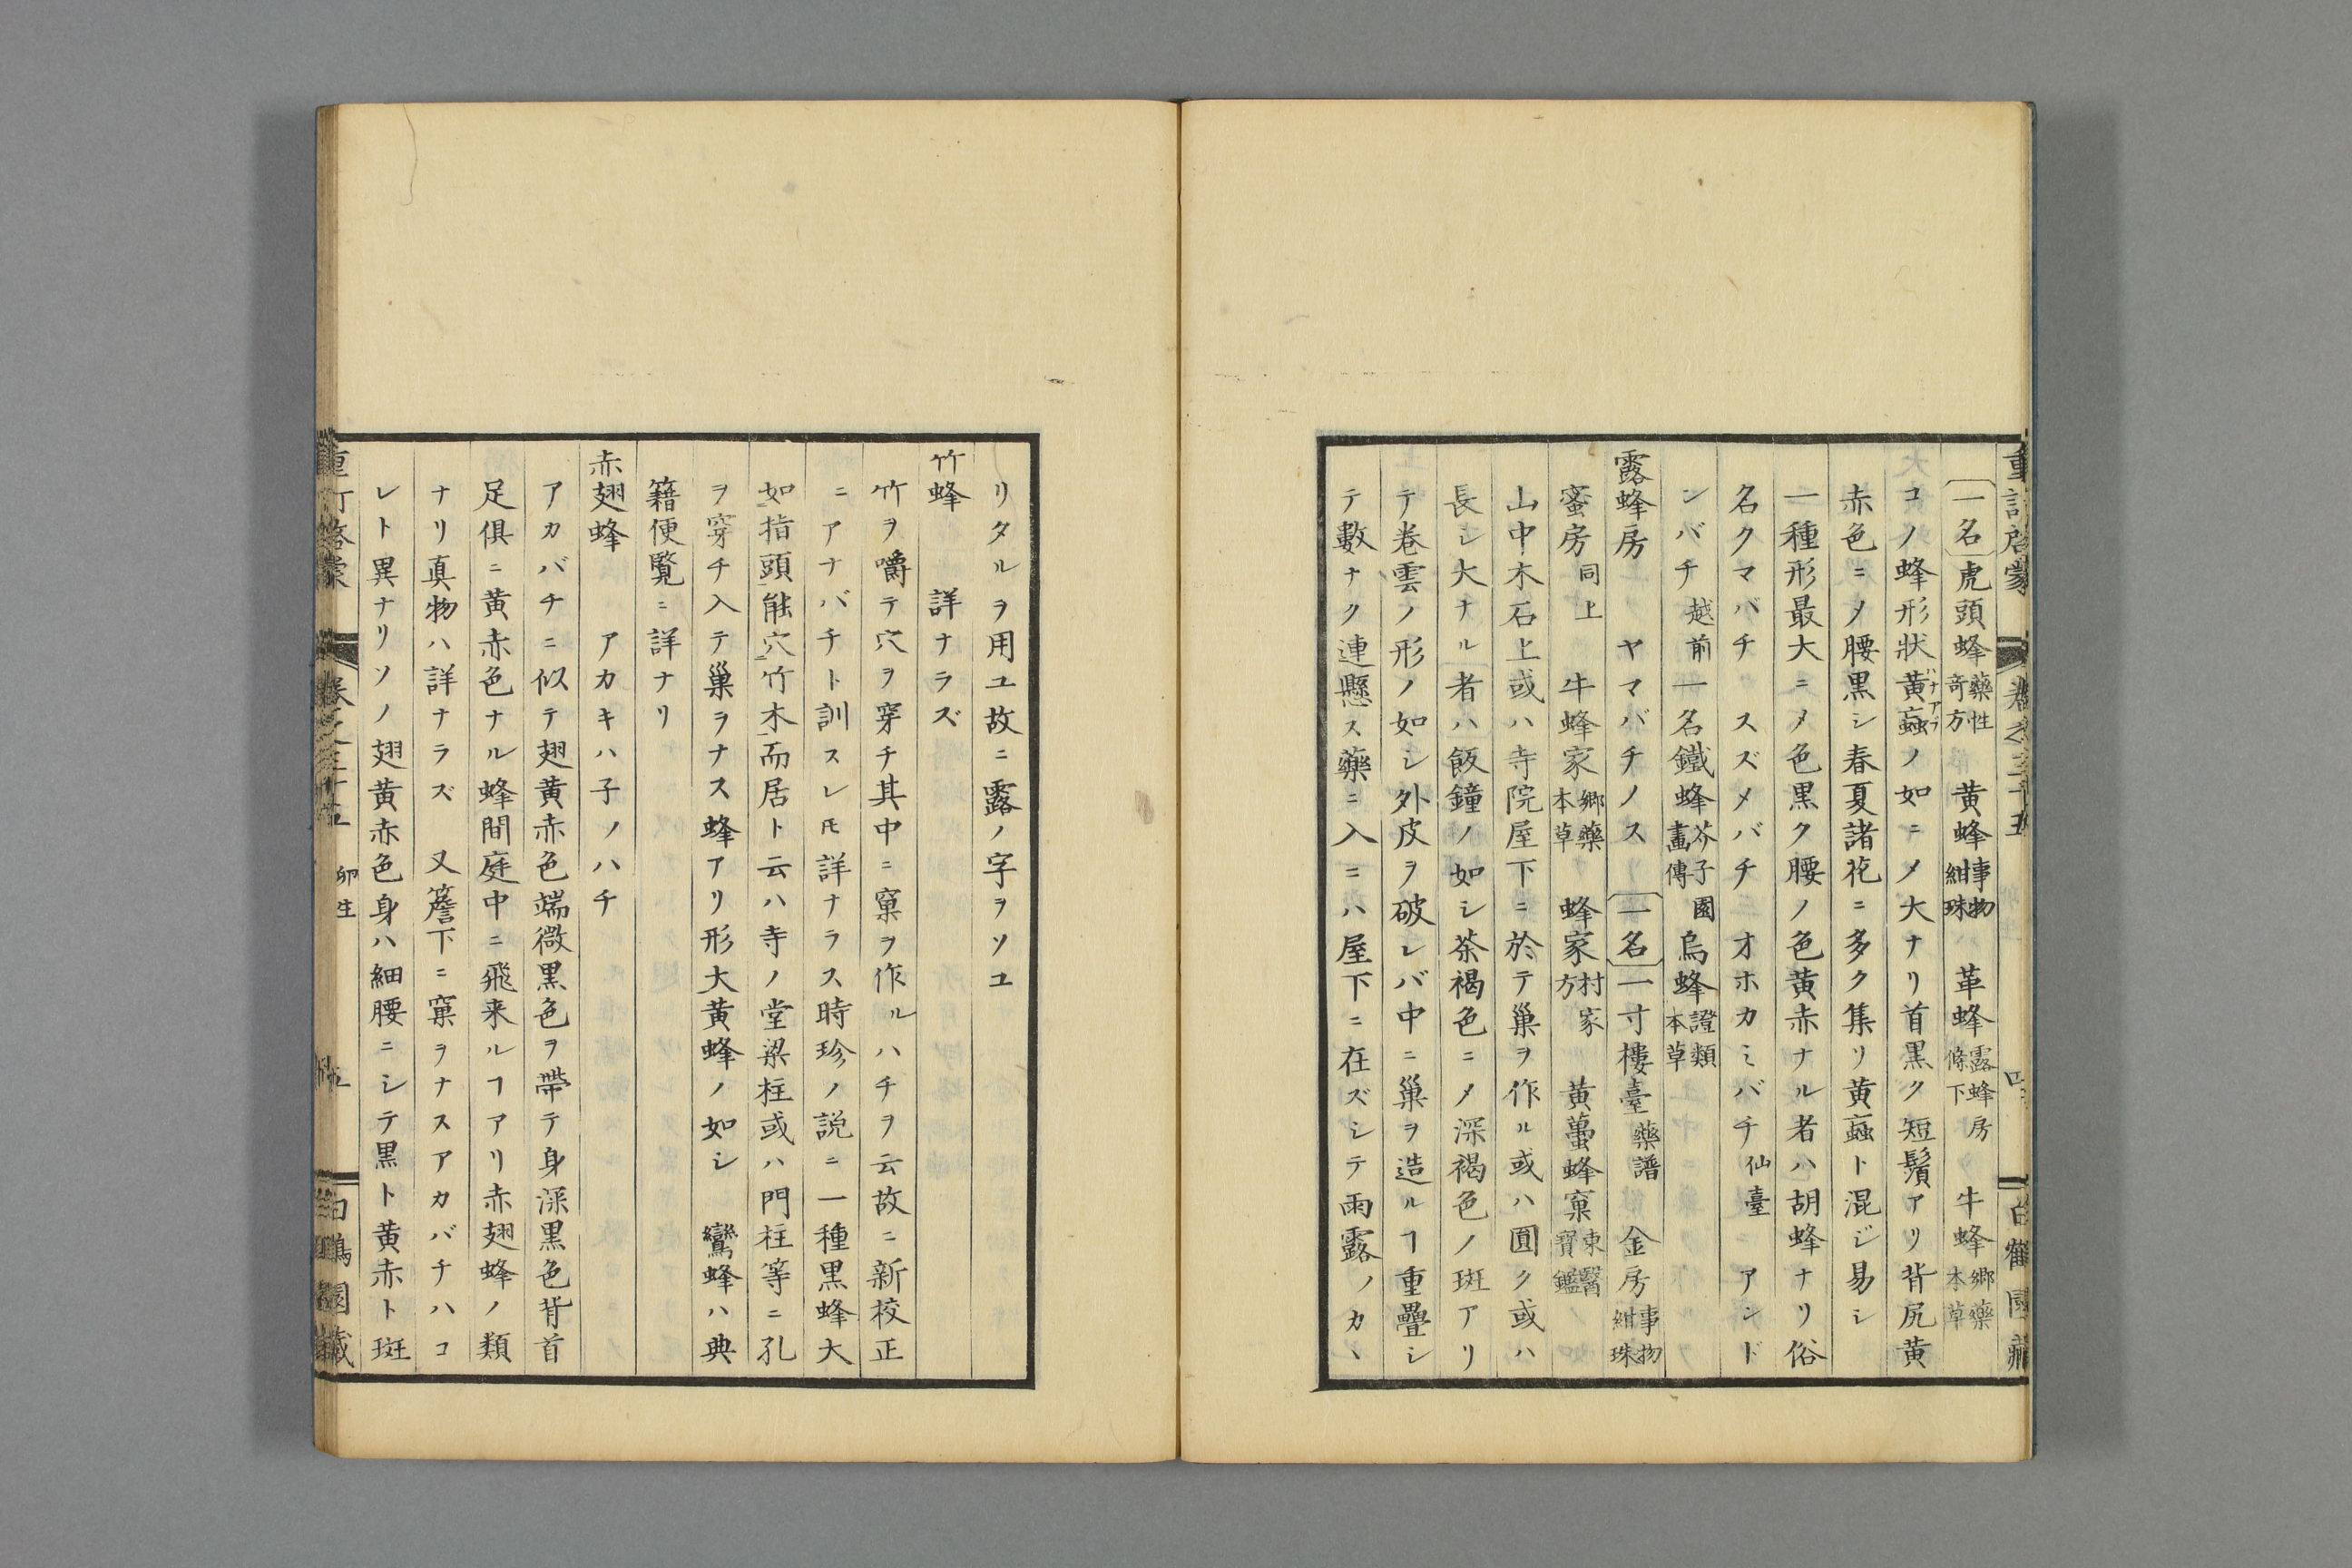 一名虎頭蜂藥性奇方 黄蜂事物紺珠 革蜂露蜂房條下 牛蜂郷藥本草
コノ蜂形状黄蝱ハナアブノ如ニメ大ナリ首黒ク短鬚アリ背尻黄
赤色ニメ腰黒シ春夏諸花ニ多ク集リ黄蝱ト混ジ易シ
一種形最大ニメ色黒ク腰ノ色黄赤ナル者ハ胡蜂ナリ俗
名クマバチ スズメバチ オホカミバチ仙臺 アンド
ンバチ越前 一名鐵蜂芥子園畫傳 烏蜂證類本草
露蜂房 ヤマバチノス 一名一寸樓臺藥譜 金房事物紺珠
蜜房同上 牛蜂家郷藥本草 蜂家村家方 黄蠆蜂窠東醫寶鑑
山中木石上或ハ寺院屋下ニ於テ巣ヲ作ル或ハ圓ク或ハ
長シ大ナル者ハ飯鐘ノ如シ茶褐色ニメ深褐色ノ斑アリ
テ卷雲ノ形ノ如シ外皮ヲ破レバ中ニ巣ヲ造ルヿ重疊シ
テ數ナク連懸ス藥ニ入ニハ屋下ニ在ズシテ雨露ノカヽ
リタルヲ用ユ故ニ露ノ字ヲソユ
竹蜂 詳ナラズ
竹ヲ嚼テ穴ヲ穿チ其中ニ窠ヲ作ルハチヲ云故ニ新校正
ニアナバチト訓スレ𪜈詳ナラス時珍ノ説ニ一種黒蜂大
如指頭能穴竹木而居ト云ハ寺ノ堂梁柱或ハ門柱等ニ孔
ヲ穿チ入テ巣ヲナス蜂アリ形大黄蜂ノ如シ 鸞蜂ハ典
籍便覧ニ詳ナリ
赤翅蜂 アカキハ子ノハチ
アカバチニ似テ翅黄赤色端微黒色ヲ帶テ身深黒色背首
足倶ニ黄赤色ナル蜂間庭中ニ飛来ルヿアリ赤翅蜂ノ類
ナリ真物ハ詳ナラズ 又簷下ニ窠ヲナスアカバチハコ
レト異ナリソノ翅黄赤色身ハ細腰ニシテ黒ト黄赤ト斑